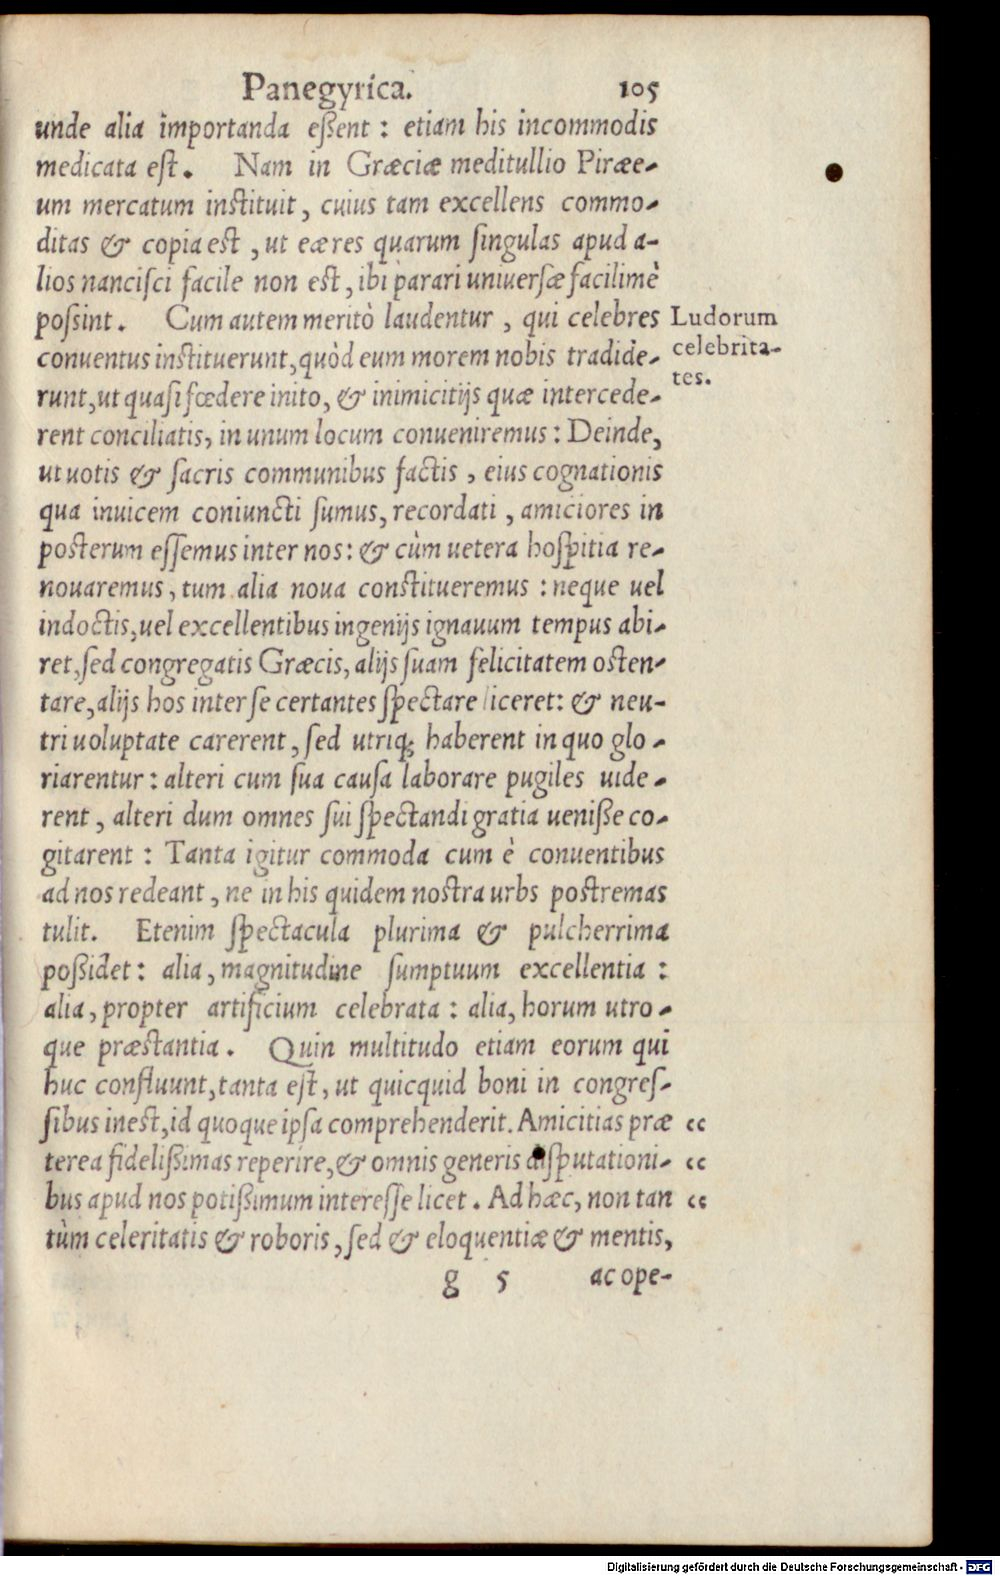 Panegyrica. 105
unde alia importanda eßent : etiam his incommodis
medicata est. Nam in Græciæ meditullio Piræe-
um mercatum instituit, cuius tam excellens commo-
ditas & copia est, ut eæ res quarum singulas apud a-
lios nancisci facile non est, ibi parari uniuersæ facilimè
poſsint. Cum autem meritò laudentur, qui celebres
conuentus instituerunt, quòd eum morem nobis tradide-
runt, ut quasi fœdere inito, & inimicitijs quæ intercede-
rent conciliatis, in unum locum conueniremus : Deinde,
ut uotis & ſacris communibus factis, eius cognationis
qua inuicem coniuncti ſumus, recordati, amiciores in
posterum eſſemus inter nos: & cùm uetera hoſpitia re-
nouaremus, tum alia noua constitueremus : neque uel
indoctis, uel excellentibus ingenijs ignauum tempus abi-
ret, ſed congregatis Græcis, alijs ſuam felicitatem osten-
tare, alijs hos inter ſe certantes ſpectare liceret: & neu-
tri uoluptate carerent, ſed utriq; haberent in quo glo-
riarentur : alteri cum ſua cauſa laborare pugiles uide-
rent, alteri dum omnes ſui ſpectandi gratia ueniße co-
gitarent : Tanta igitur commoda cum è conuentibus
ad nos redeant, ne in his quidem nostra urbs postremas
tulit. Etenim ſpectacula plurima & pulcherrima
poßidet : alia, magnitudine ſumptuum excellentia :
alia, propter artificium celebrata : alia, horum utro-
que præstantia. Quin multitudo etiam eorum qui
huc confluunt, tanta est, ut quicquid boni in congreſ-
ſibus inest, id quoque ipſa comprehenderit. Amicitias præ
terea fidelißimas reperire, & omnis generis diſputationi-
bus apud nos potißimum intereſſe licet. Ad hæc, non tan
tùm celeritatis & roboris, ſed & eloquentiæ & mentis,
g 5 ac ope-
Ludorum
celebrita-
tes.
cc
cc
cc
Digitalisierung gefördert durch die Deutsche Forschungsgemeinschaft - DFG